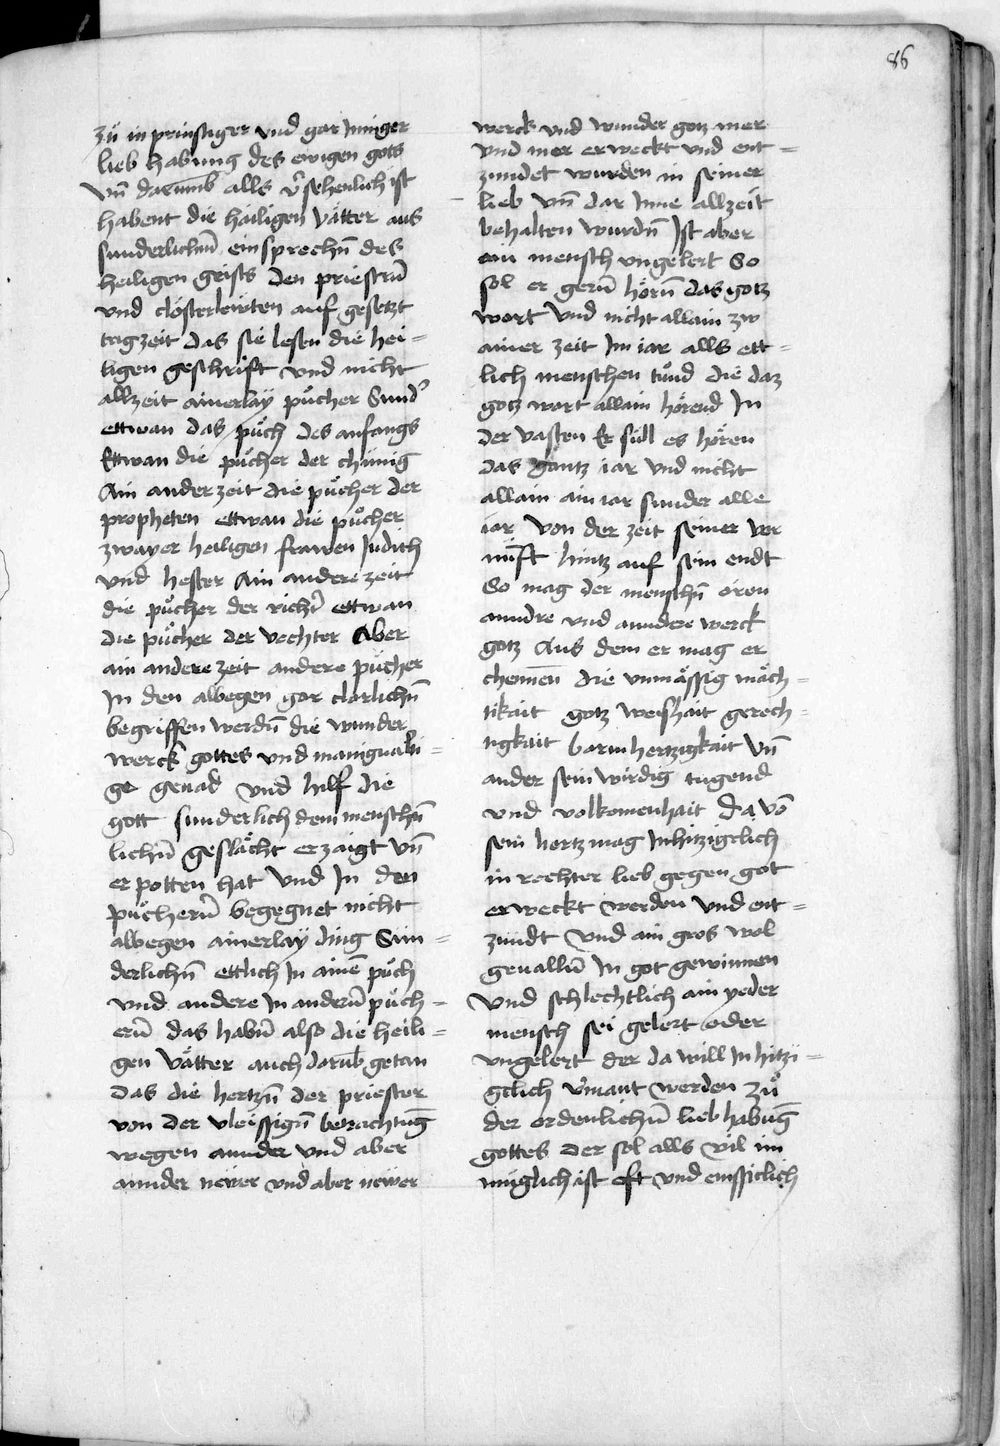 86
zů in prinstiger vnd gar Inniger
lieb habung des ewigen gots
Vn̄ darumb alls v̾sehenlich ist
habent die háiligen Vátter aus
sunderlichm̄ einsprechn̄ des
heiligen geists den priestrn̄
vnd clósterlewten auf gesetzt
tagzeit das sie lesen die hei=
ligen geschrift vnd nicht
allzeit ainerlaÿ půcher Sund̾
ettwan das půch des anfangs
Ettwan die půcher der chünig
Ain ander zeit die půcher der
propheten ettwan die půcher
zwayer heiligen frawen Judith
vnd hester Ain andere zeit
die půcher der richt̾ ettwan
die půcher der vechter Aber
ain andere zeit andere půcher
In den albegen gar clárlichn̄
begriffen werdn̄ die wunder
werck gottes vnd manigualti=
ge genad vnd hilf die
gott sunderlich dem menschn̄
lichn̄ geslácht erzaigt vn̄
erpotten hat Vnd In den
půchern̄ begegnet nicht
albegen ainerlaÿ ding Sun=
derlichn̄ ettlich In ainē půch
vnd andere In andern̄ půch=
ern̄ das habn̄ also die heili=
gen Vátter auch darub̄ getan
das die hertzn̄ der priester
von der vleissign̄ betrachtūg
wegen annder vnd aber
annder newer vnd aber newer
werck vnd wunder gotz mer
vnd mer erweckt vnd ent=
zundet wurden in seiner
lieb vn̄ dar Inne allzeit
behalten wurdn̄ Ist aber
ain mensch vngelert So
sol er gern̄ hörn̄ das gotz
wort Vnd nicht allain zw
ainer zeit Im iar alls ett=
lich menschen tůnd die daz
gotz wart allain hörend In
der vasten Er süll es hören
das gantz iar vnd nicht
allain ain iar sunder alle
iar von der zeit seiner ver
nüft hintz auf sein endt
So mag der menschn̄ óren
anndre vnd anndere werck
gotz Aus dem er mag er
chennēn die vnmássig mách=
tikait gotz weishait gerech=
tigkait barmhertzigkait Vn̄
ander sein wirdig tugend
vnd volkomenhait Da vō
sein hertz mag Inhitzigclich
in rechter lieb gegen got
erweckt werden vnd ent=
zündt Vnd ain gros wol
geualln̄ In got gewinnen
Vnd schlechtlich ain yeder
mensch sei gelert oder
vngelert der da will Inhitzi=
gclich v̾mant werden zů
der ordenlichn̄ lieb habūg
gottes der sol alls vil im
müglich ist oft vnd emssiclich